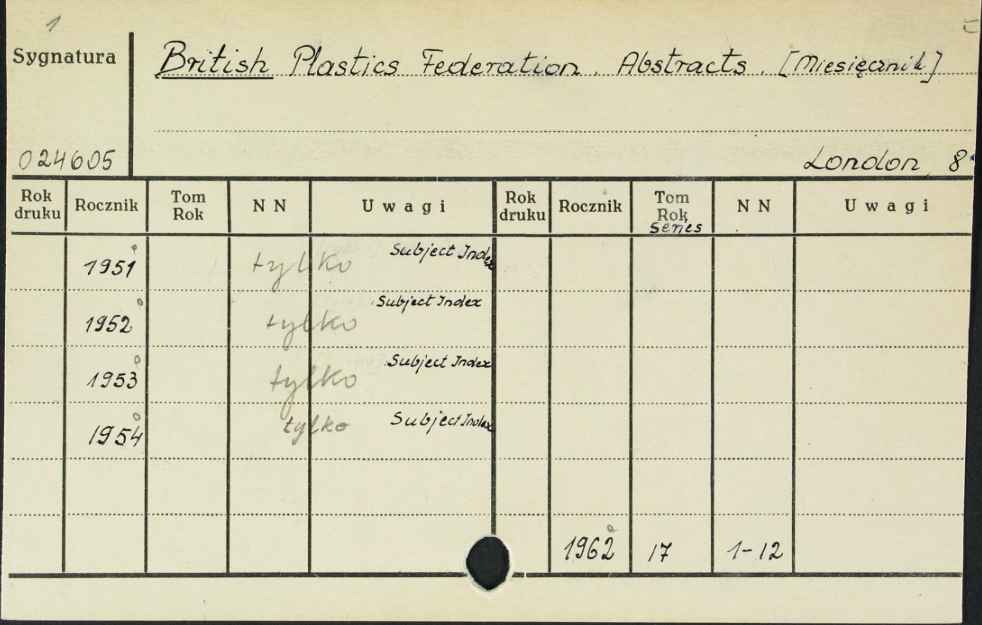 1
Sygnatura
British Plastics Federation. Abstracts. [Miesięcznik]
024605
London, 8°
Rok druku Rocznik Tom Rok N N Uwagi Rok druku Rocznik Tom Rok Series N N Uwagi
1951 tylko Subject Index
1952 tylko Subject Index
1953 tylko Subject Index
1954 tylko Subject Index
1962 17 1-12